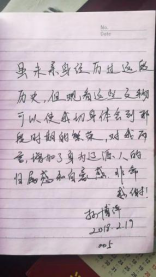 No
Date
虽未亲身经历过这段
历史,但观看这些文物
可以使我切身体会到那
段时期的繁荣,对我而
言,增加了身为辽源人的
归属感和自豪感,非常
感谢!
2018.2.17
005